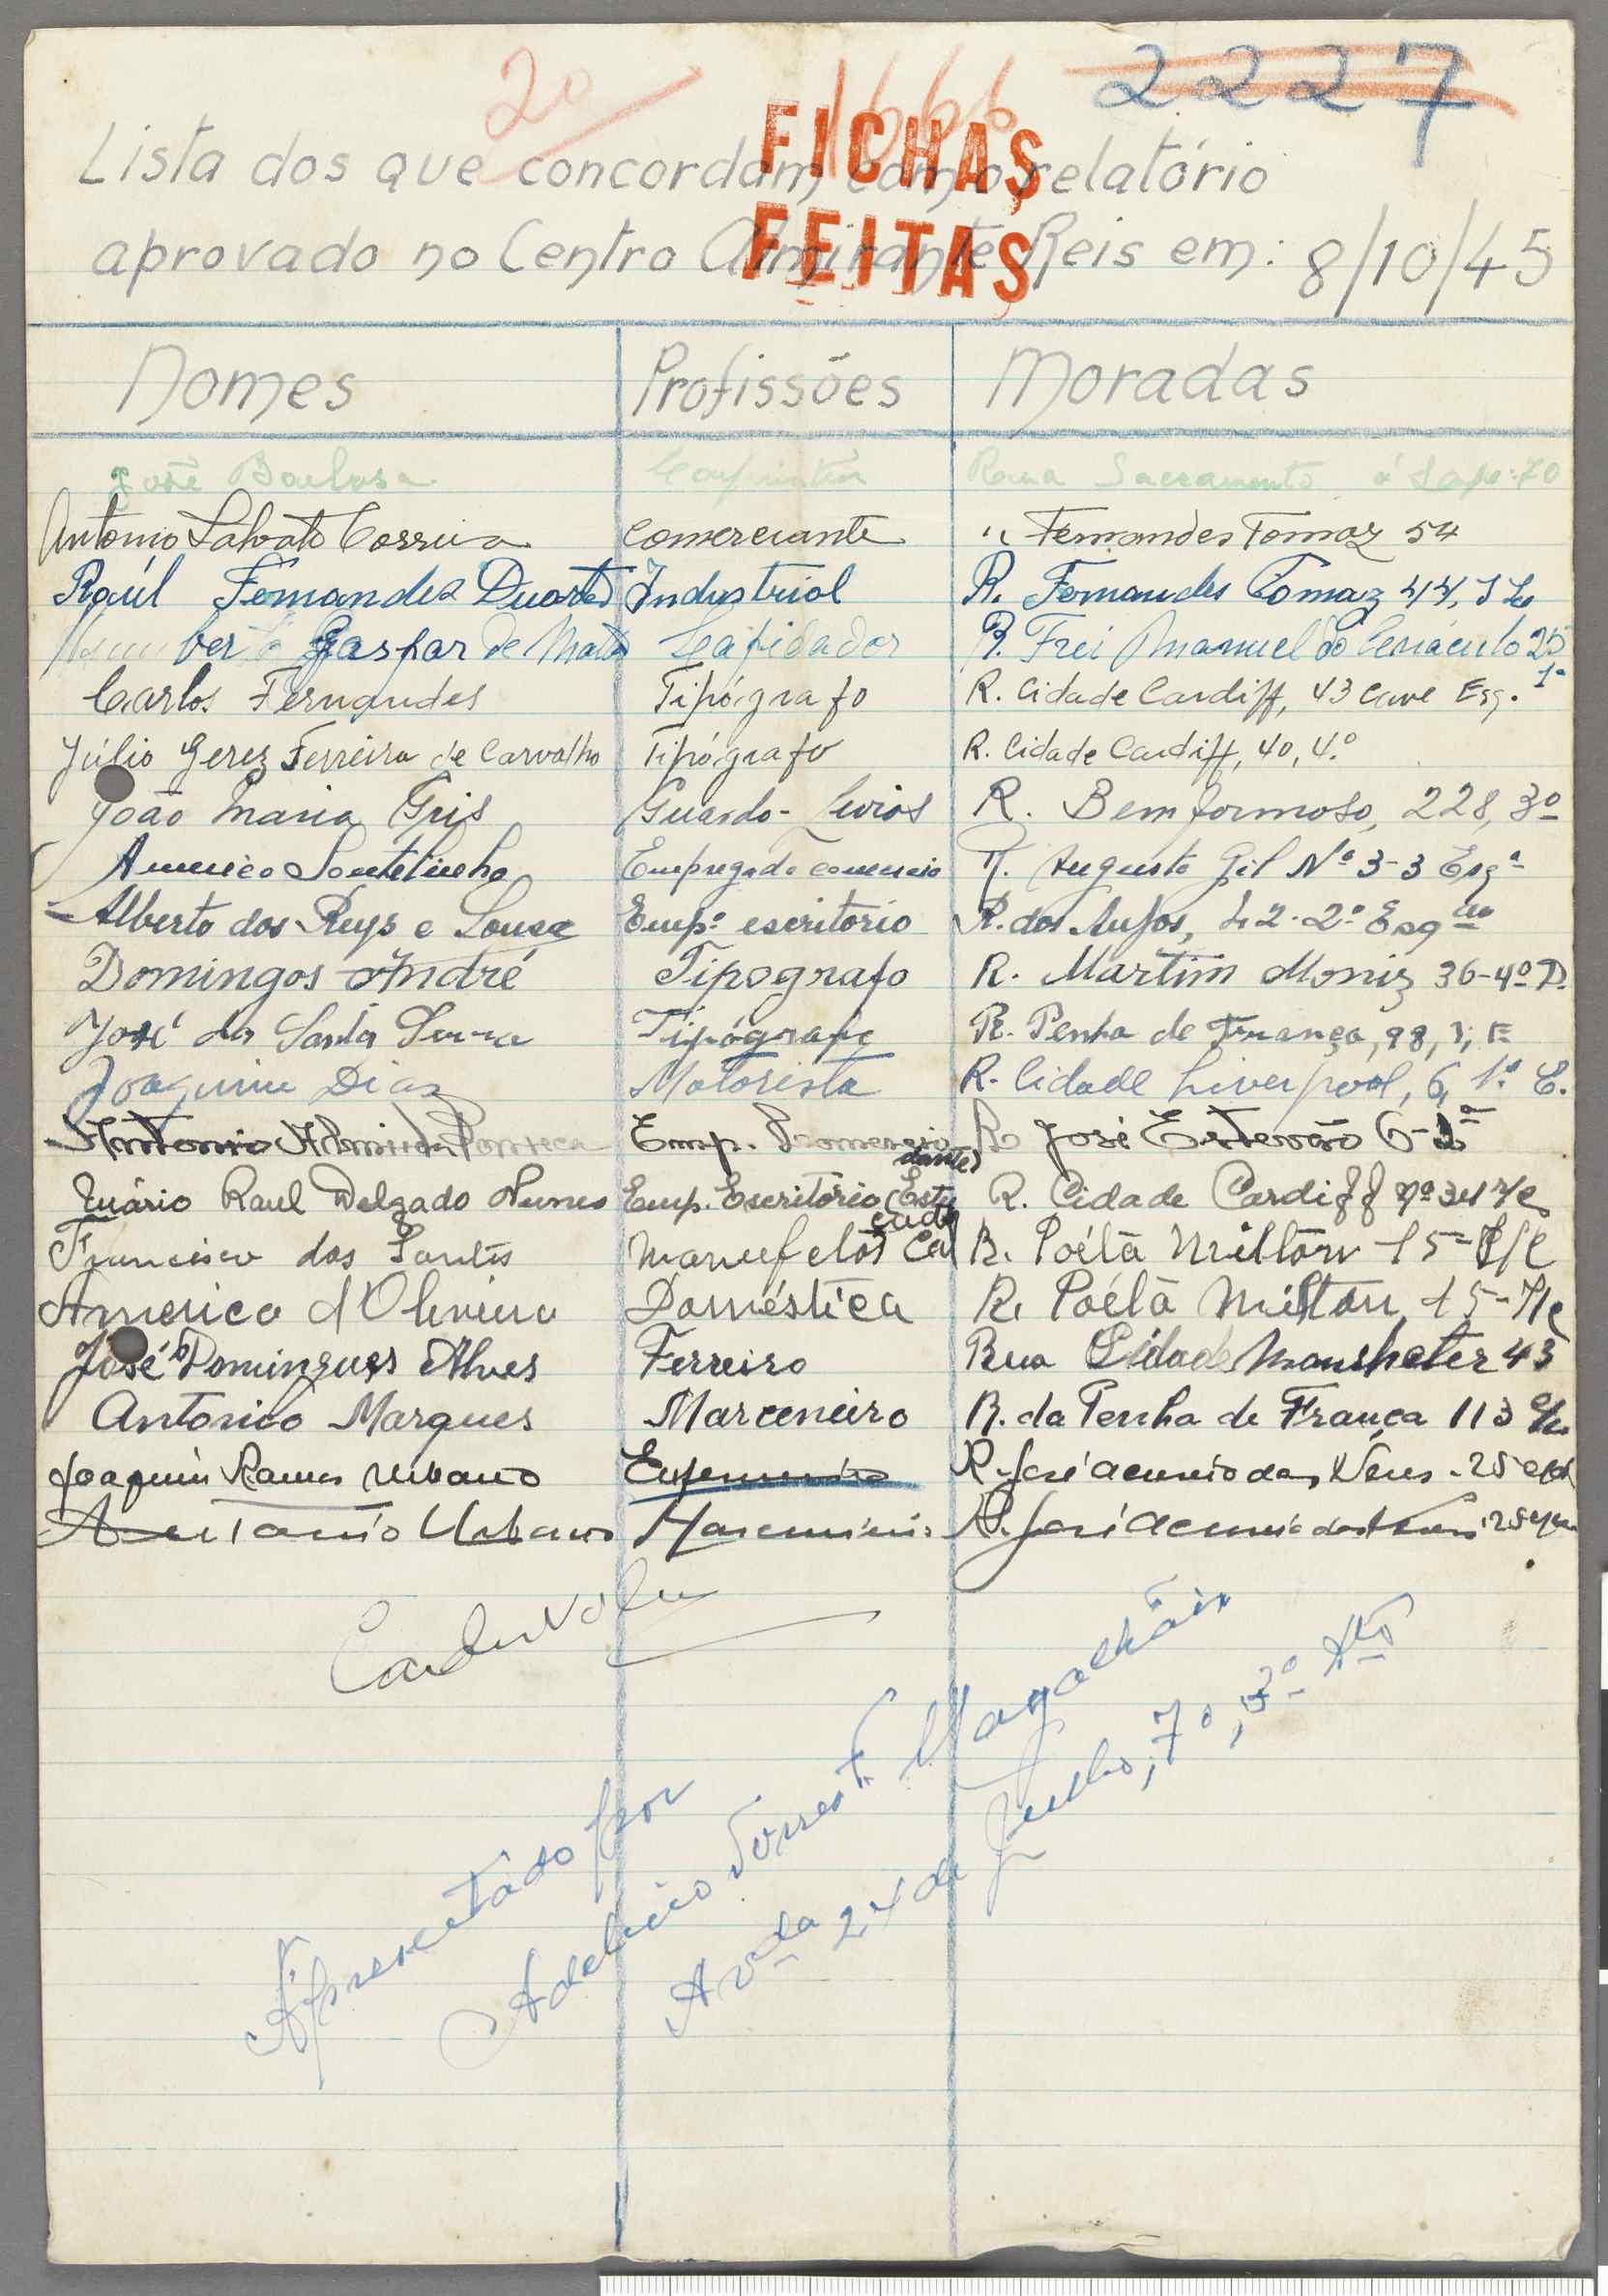 20 1666 2227
Lista dos que concordam com o relatório
aprovado no Centro Almirante Reis em: 8/10/45
FICHAS
FEITAS
Nomes Profissões Moradas
José Barbosa Carpinteiro Rua Sacramento á Lapa 70
Antonio Salvato Correia Comerciante " Fernandes Tomaz 54
Raúl Fernandes Duarte Industrial R. Fernandes Tomaz 44,
Gaspar de Matos Lapidador R. Frei Manuel do Cenáculo 25 1º
Carlos Fernandes Tipógrafo R. Cidade Cardiff, 43 Cave Esq.
Júlio Gerez Ferreira de Carvalho Tipógrafo R. Cidade Cardiff, 40, 4.º
João Maria Gris Guarda-livros R. Bemformoso, 228, 3º
Americo Empregado comercio R. Augusto Gil Nº 3-3 Esqº
Alberto dos Reys e Sousa Empº escritório R. dos Anjos, 42-2º Esqdo
Domingos André Tipografo R. Martim Moniz 36-4º D.
José da Santa Tipógrafo R. Penha de França, 98,
Joaquim Dias Motorista R. Cidade Liverpool, 6, 1º E.
Antonio Almeida Fonseca Emp. Comercio R. José Estevão 6-
Mário Raul Delgado Nunes Emp. Escritório (Estudante) R. Cidade Cardiff nº 34 r/c
Francisco dos Santos R. Poéta Milton 15-r/c
America d'Oliveira Doméstica R. Poéta Milton, 15-r/c
José Domingues Alves Ferreiro Rua Cidade Mansheter 43
Antonio Marques Marceneiro R. da Penha de França 113
Joaquim Ramos Urbano Enfermeiro R. José Acurcio das Neves 25
Antonio Urbano Marceneiro R. José Acurcio das Neves 25
Apresentado por
Adelino Torres Magalhães
Avda 24 de Julho, 70, 3º